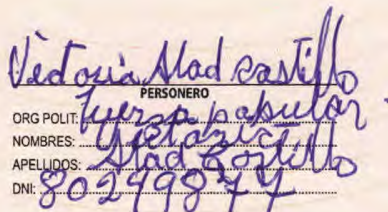 Victoria Abad Castillo
PERSONERO
ORG POLIT: Fuerza popular
NOMBRES: Victoria
APELLIDOS: Abad Castillo
DNI: 80299844